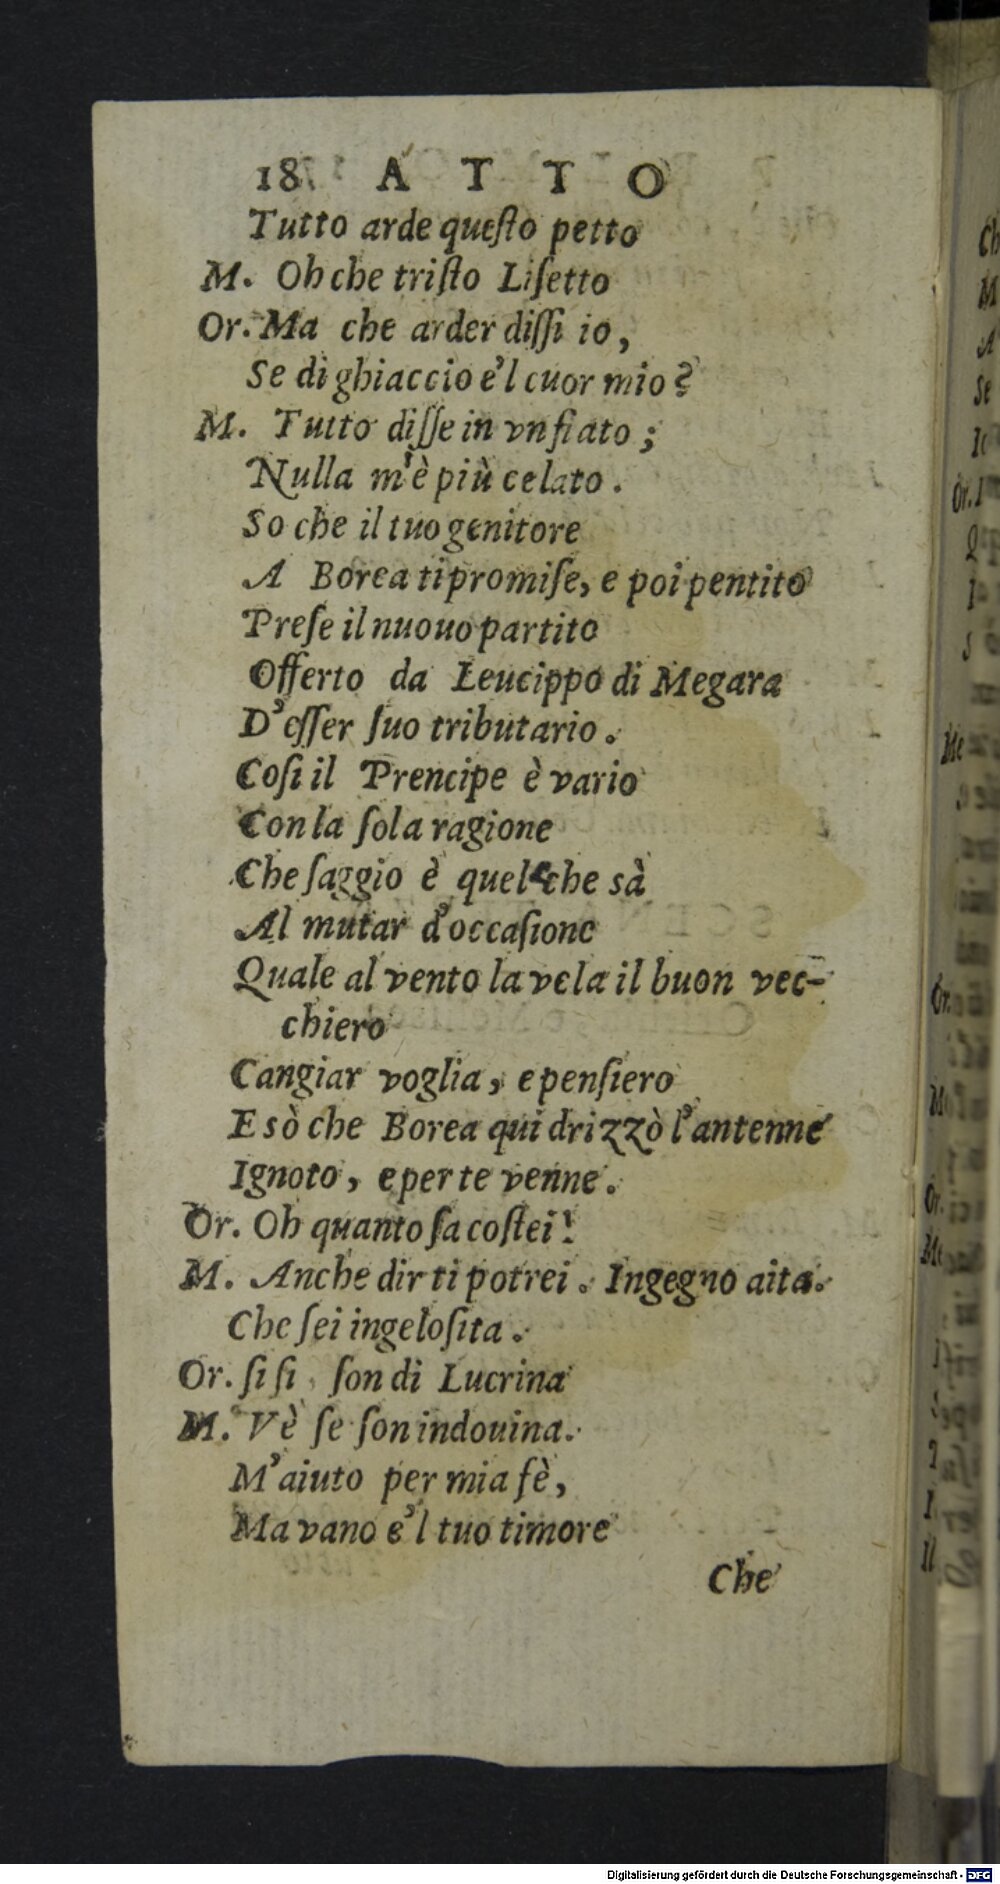 18 ATTO
Tutto arde queſto petto
M. Oh che triſto Liſetto
Or. Ma che arder diſſi io,
Se di ghiaccio e'l cuor mio?
M. Tutto diſſe in vn fiato;
Nulla m'è più celato.
So che il tuo genitore
A Borea ti promiſe, e poi pentito
Preſe il nuouo partito
Offerto da Leucippo di Megara
D'eſſer ſuo tributario.
Coſi il Prencipe è vario
Con la ſola ragione
Che ſaggio è quel che sà
Al mutar d'occaſione
Quale al vento la vela il buon vec-
chiero
Cangiar voglia, e penſiero
E sò che Borea qui drizzò l'antenne
Ignoto, e per te venne.
Or. Oh quanto ſa coſtei!
M. Anche dir ti potrei. Ingegno aita.
Che ſei ingeloſita.
Or. ſi ſi ſon di Lucrina
M. Vè ſe ſon indouina.
M'aiuto per mia fè,
Ma vano e'l tuo timore
Che
Digitalisierung gefördert durch die Deutsche Forschungsgemeinschaft - DFG